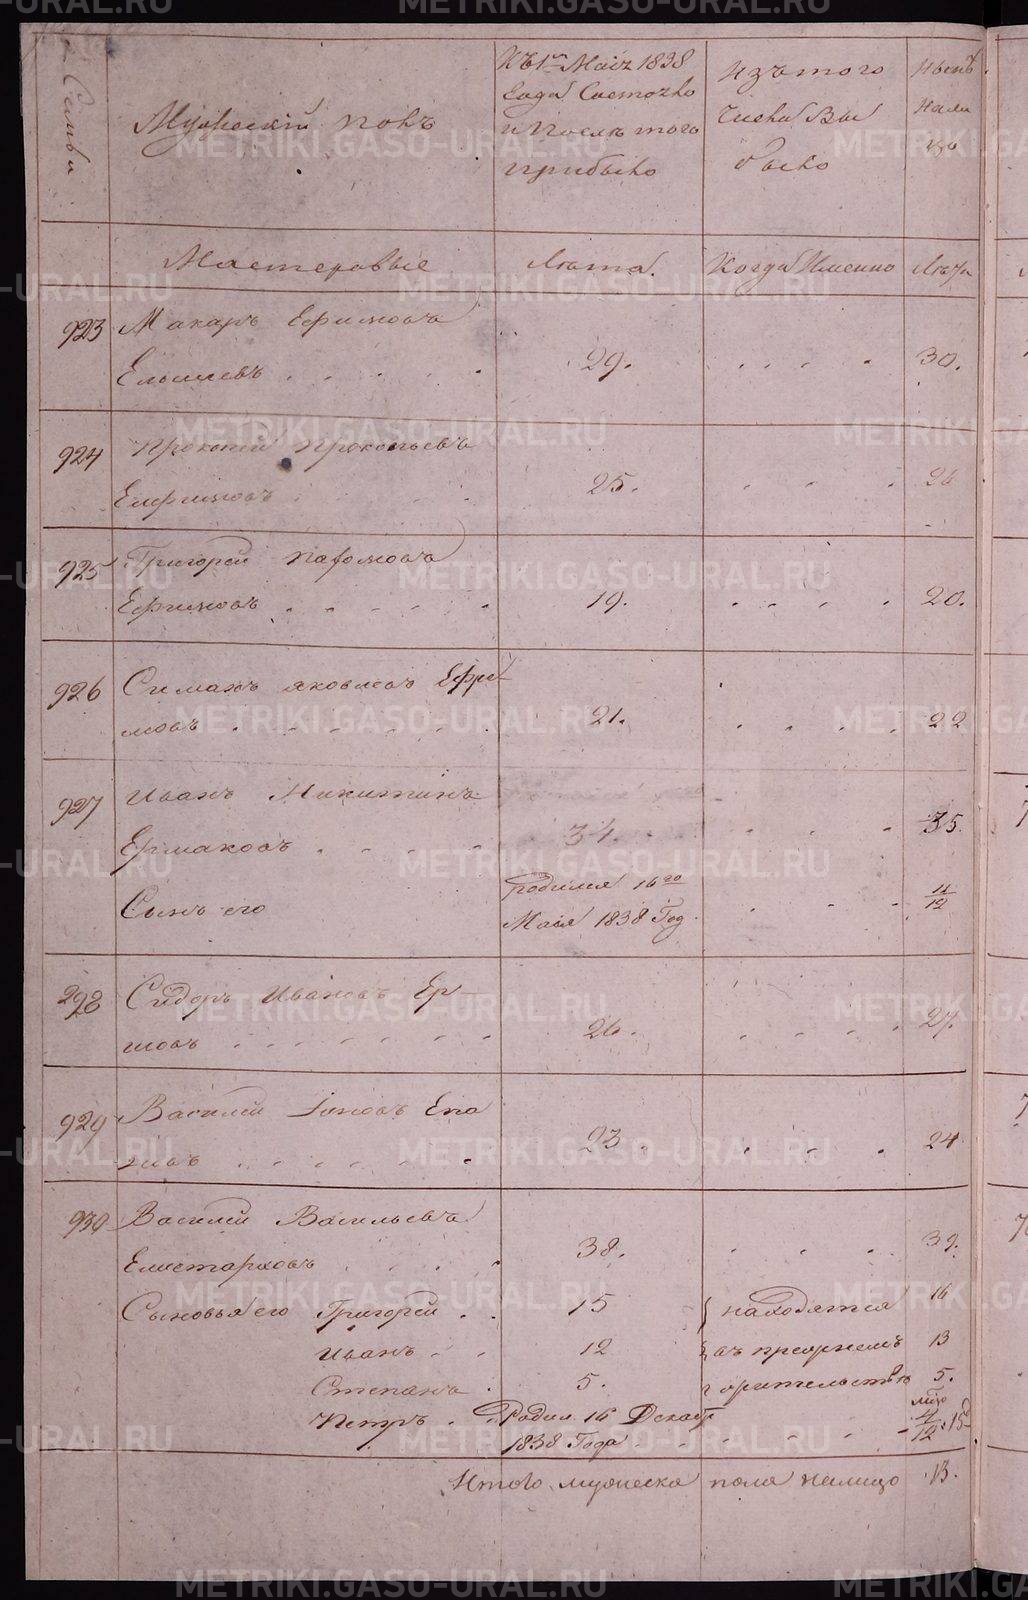 Семьи
Мужескій полъ
Къ 1му Маія 1838
Года Состояло
и Послѣ того
прибыло
Изъ того
Числа Вы
было
Нынѣ
Нали
цо
Мастеровые
Лѣта.
Когда Именно
Лѣта
923 Макаръ Ефимовъ
29. 30.
924 Прокопій Прокопьевъ
Ефимовъ 25. 26
925 Григорей Пафомовъ
Ефимовъ 19. 20.
926 Симанъ Яковлевъ Ефи
мовъ 21. 22
927 Иванъ Никитинъ
Ермаковъ 34. 35.
Сынъ его
родился 16го
Маія 1838 Год. 11/12
928 Сидоръ Ивановъ Ер
шовъ 26. 27.
929 Василей Іоновъ Епа
23. 24
930 Василей Васильевъ
Елистарховъ 38. 39.
Сыновья его Григорей 15 находятся 16
Иванъ 12 въ прежнемъ 13
Степанъ 5. жительствѣ 5.
Петръ. Родил. 16 Декаб
1838 Года 4/12. 15д
Итого мужеска пола налицо 13.
METRIKI.GASO-URAL.RU